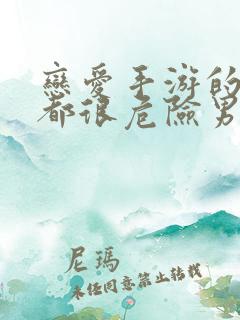 戀愛手游的
都很危險男
尼瑪
未經同意禁止轉載